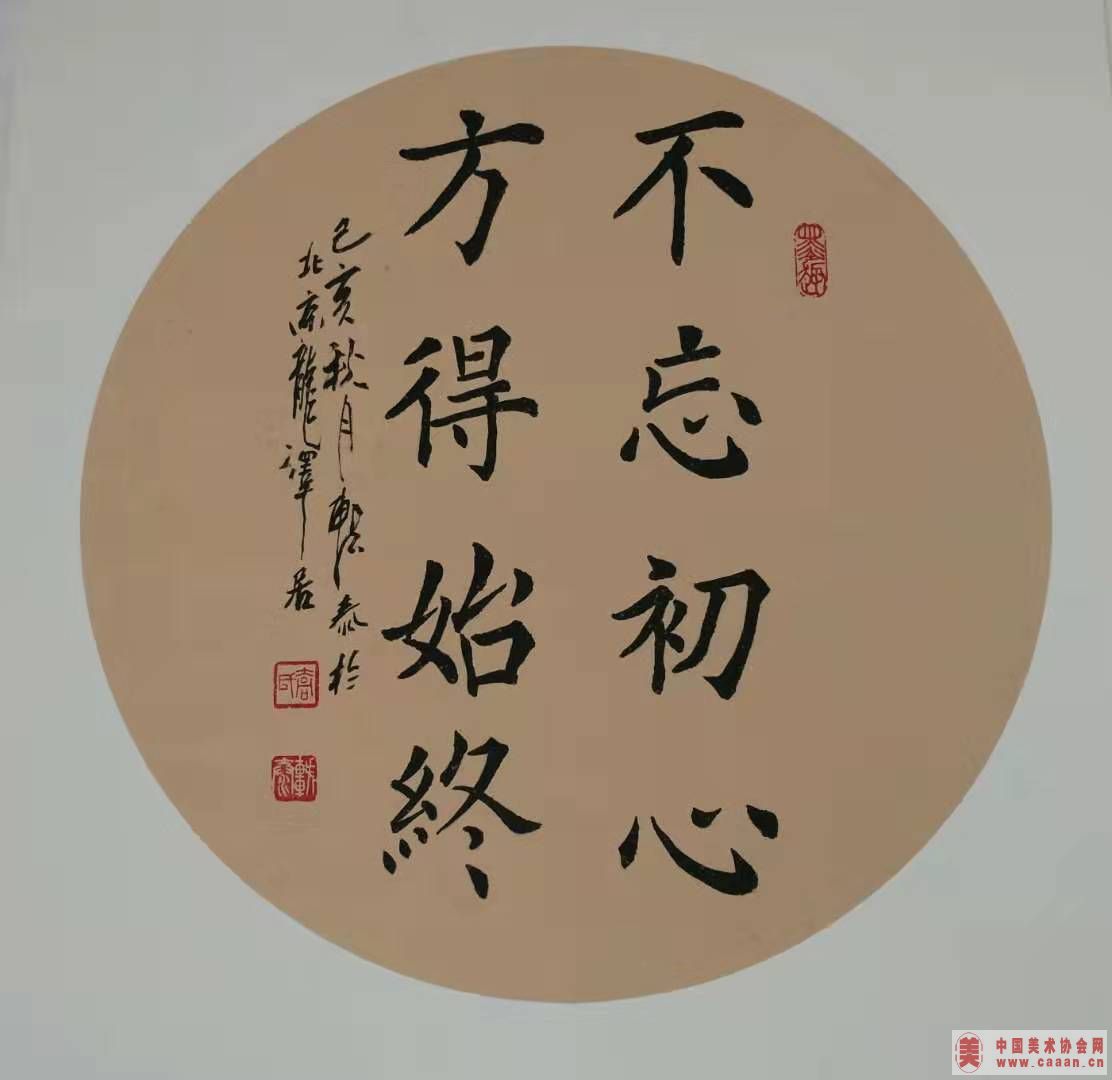 不忘初心
方得始終
己亥秋月 泰於
北京龍澤居
中国美术协会网
www.caaan.cn